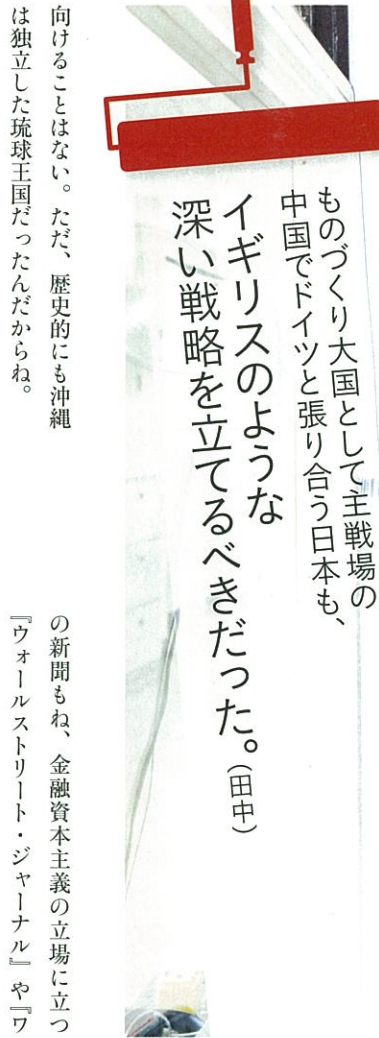 ものづくり大国として主戦場の
中国でドイツと張り合う日本も、
イギリスのような
深い戦略を立てるべきだった。（田中）
向けることはない。ただ、歴史的にも沖縄
は独立した琉球王国だったんだからね。
の新聞もね、金融資本主義の立場に立つ
『ウォールストリート・ジャーナル』や『ワ